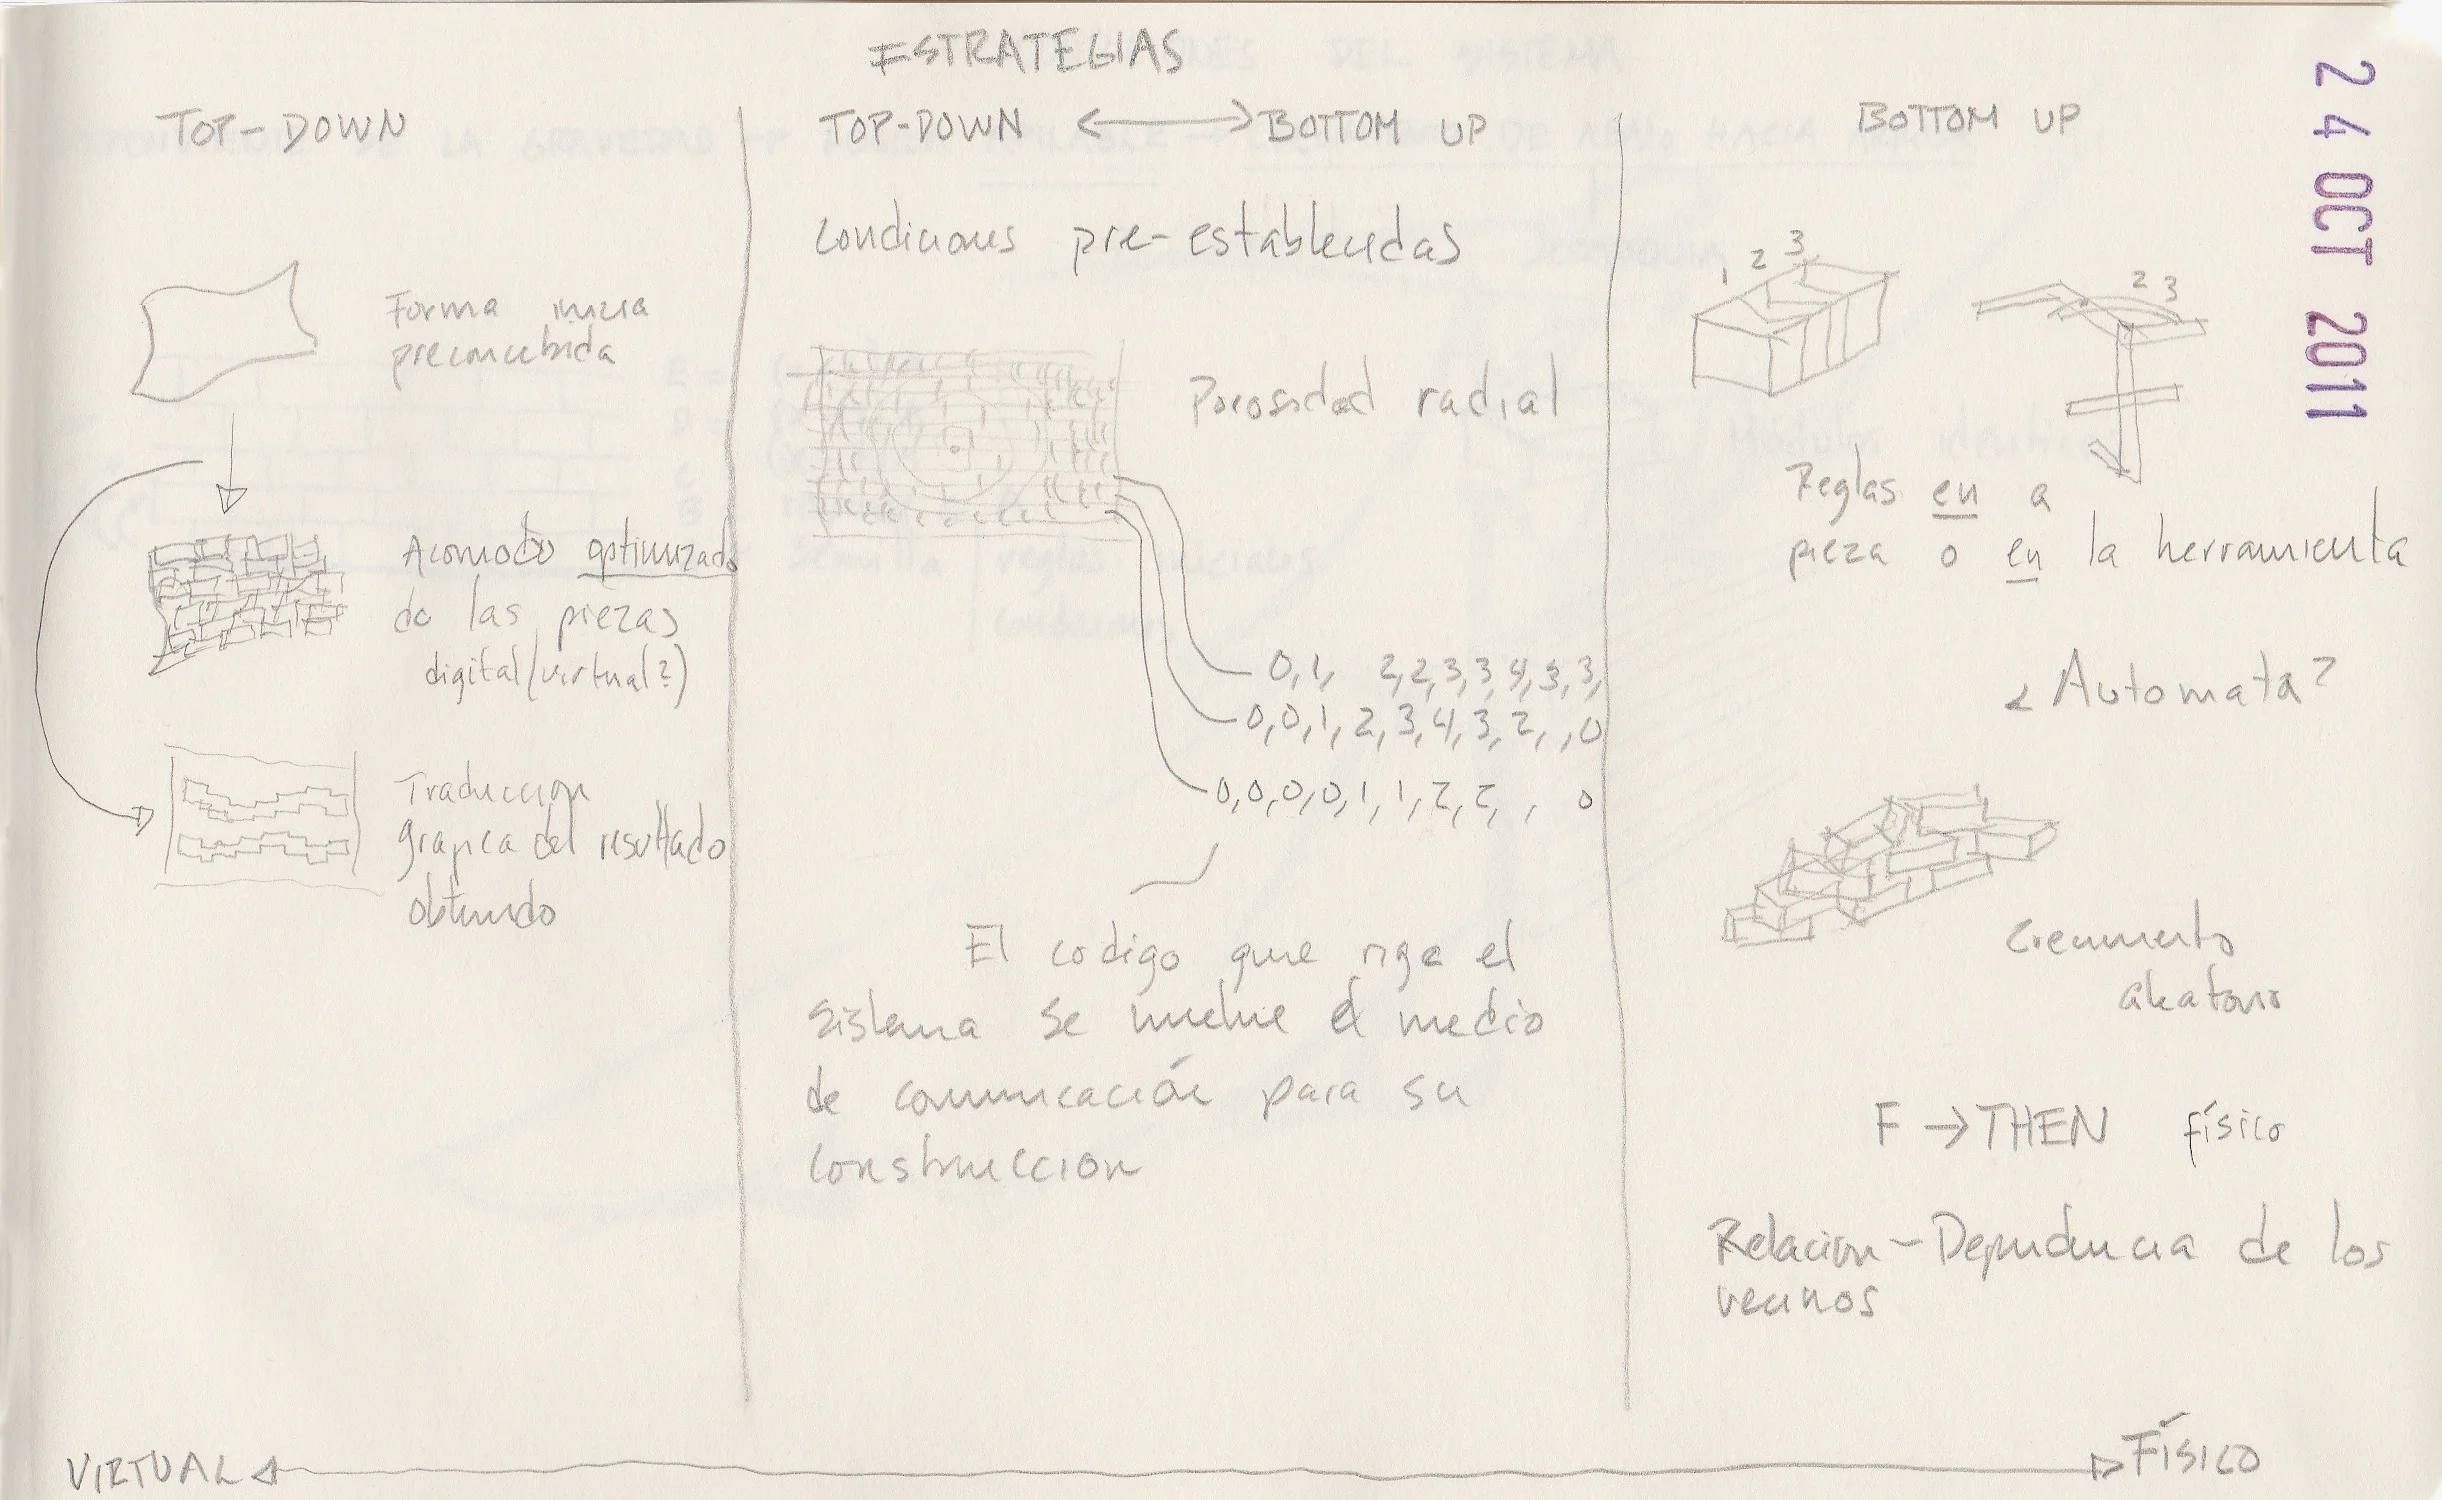 ESTRATEGIAS
24 OCT 2011
TOP-DOWN
Forma inicia
preconcebida
Acomodo optimizado
de las piezas
digital (virtual?)
Traduccion
grafica del resultado
obtenido
TOP-DOWN <-> BOTTOM UP
Condiciones pre-establecidas
Porosidad radial
0,1, 2,2,3,3,4,3,3,
0,0,1,2,3,4,3,2, ,0
0,0,0,0,1,1,2,2, , 0
El codigo que rige el
sistema se vuelve el medio
de comunicación para su
construccion
BOTTOM UP
1 2 3
2 3
Reglas en a
pieza o en la herramienta
¿Automata?
Crecimiento
aleatorio
F → THEN físico
Relacion - Dependencia de los
vecinos
VIRTUAL
FÍSICO